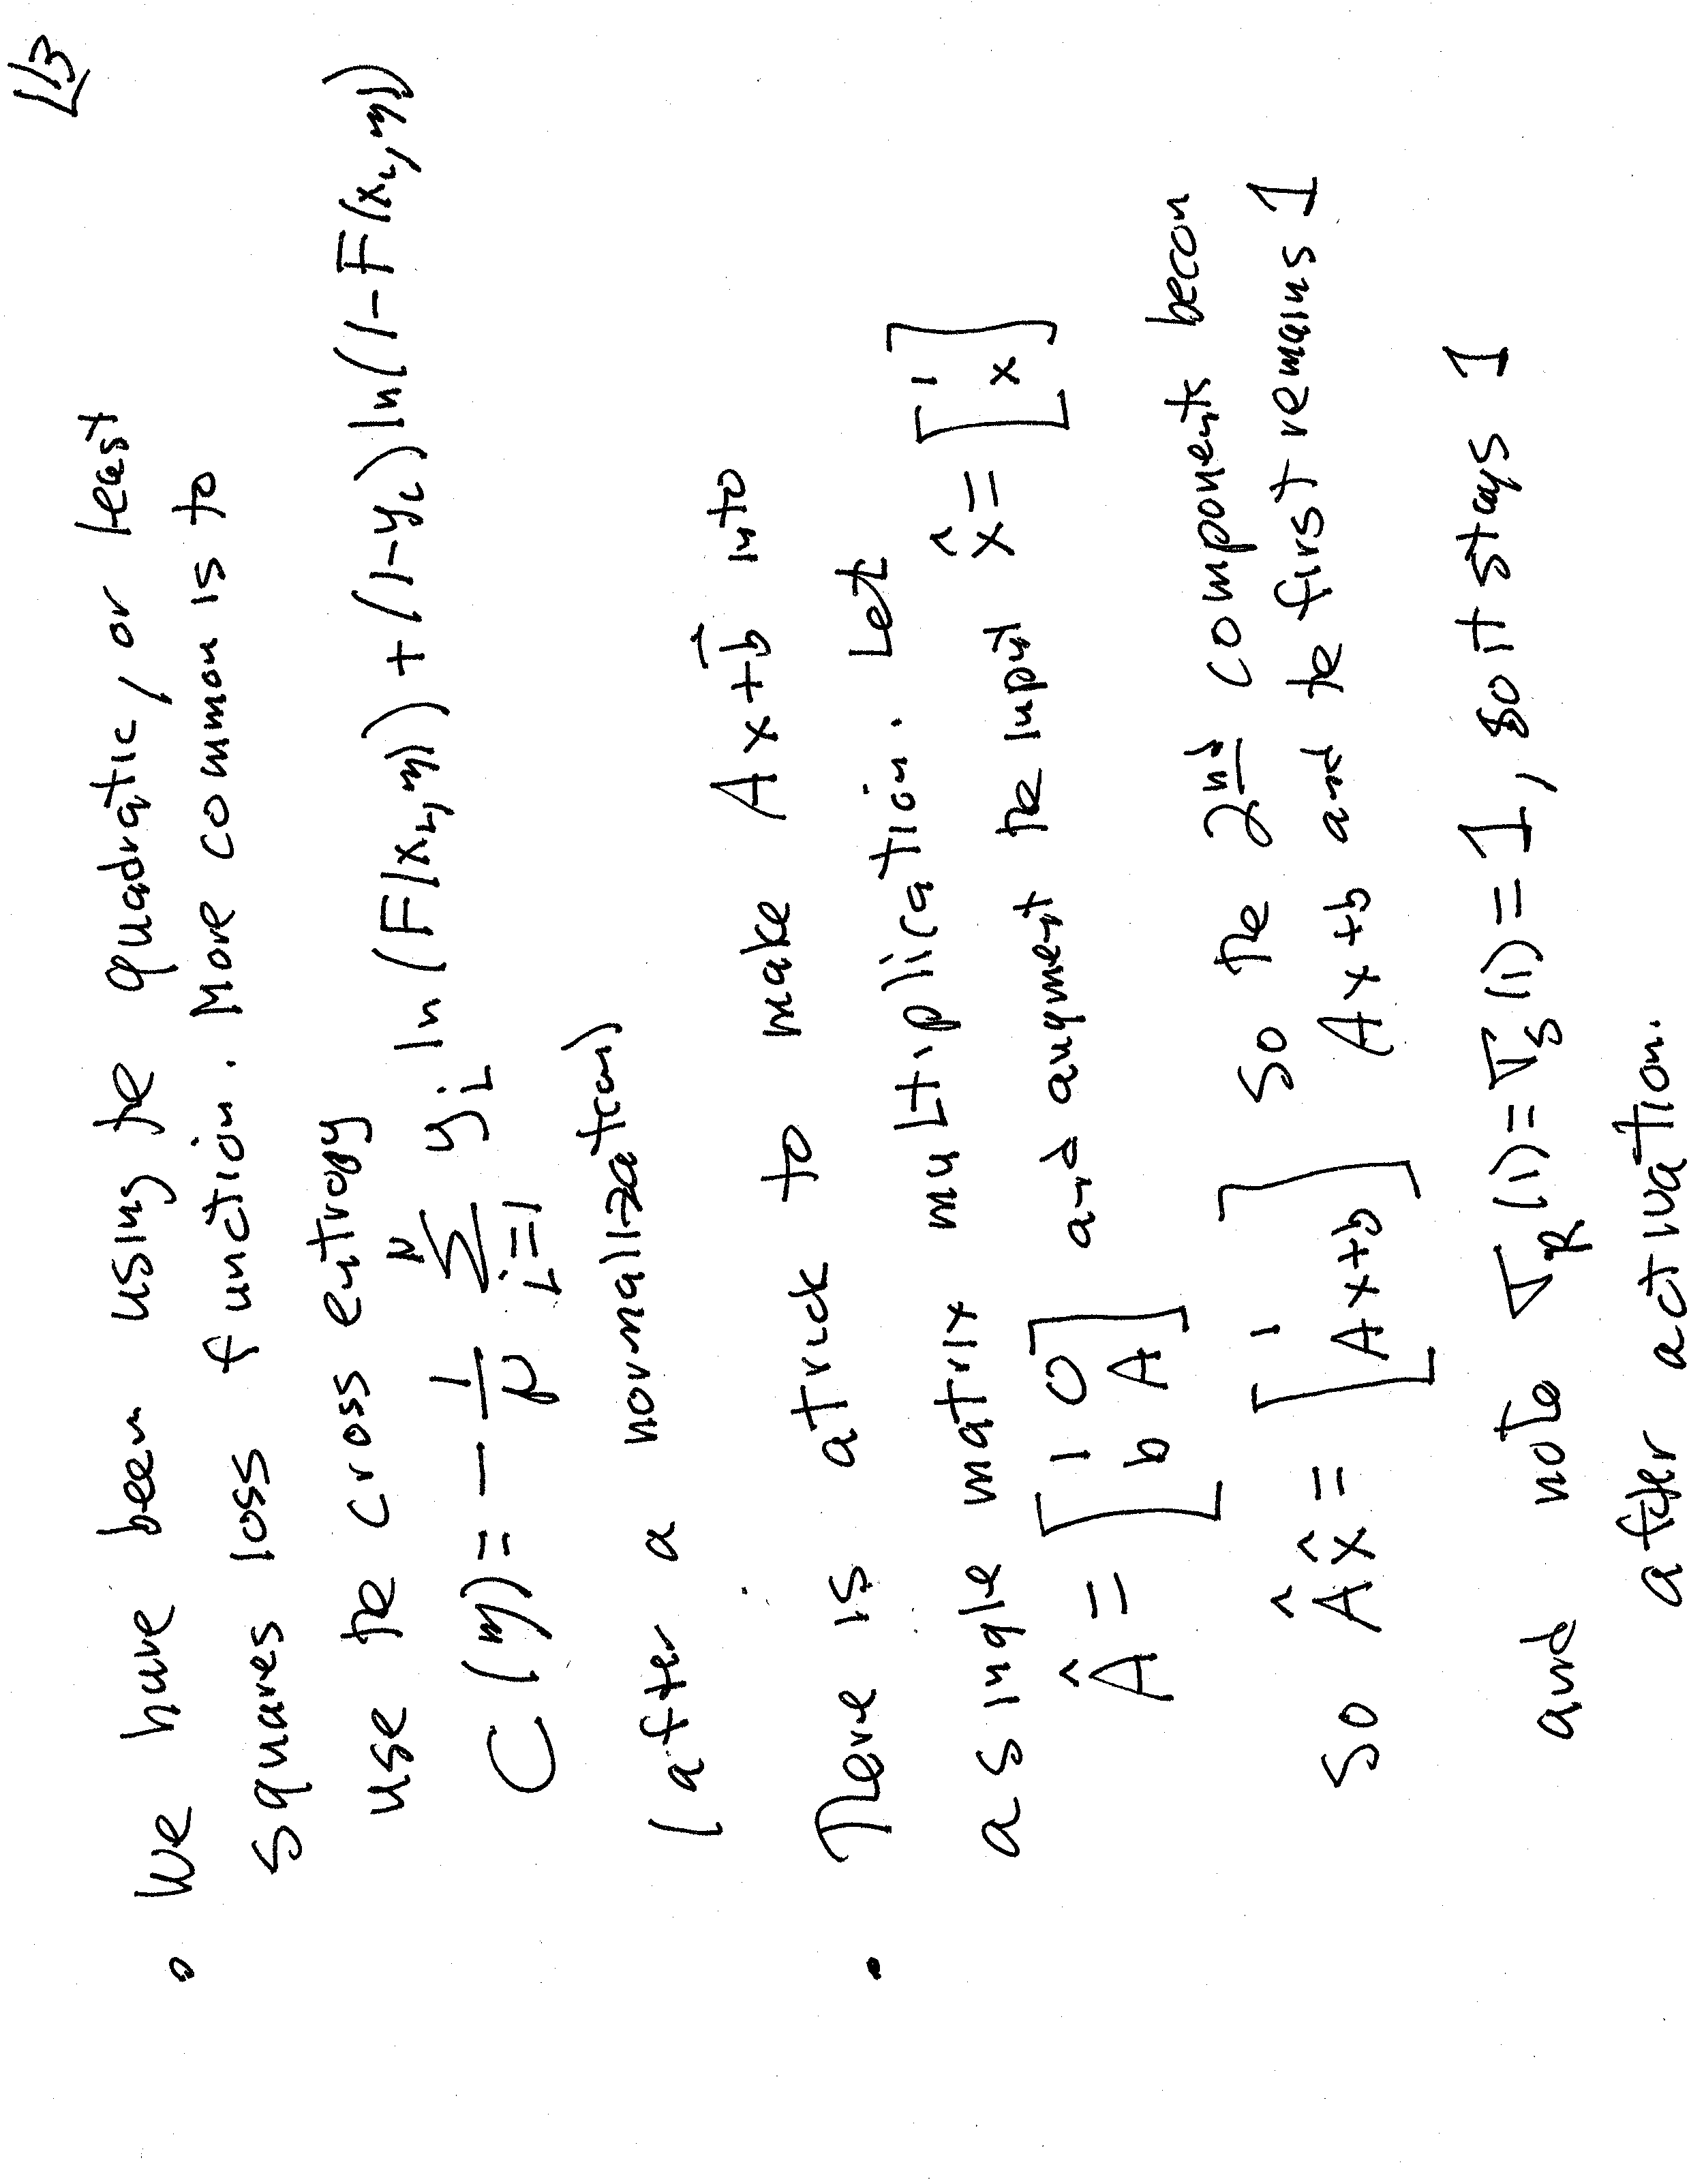 13
• We have been using the quadratic, or least
squares loss function. More common is to
use the cross entropy
C(η) = - 1/N Σ_{i=1}^{N} y_i ln(F(x_i, η)) + (1-y_i) ln(1-F(x_i, η))
(after a normalization)
• There is a trick to make Ax+b⃗ into
a single matrix multiplication. Let
Â = [1 0; b A] and augment the input x̂ = [1; x]
So Âx̂ = [1; Ax+b] So the 2nd components becom
Ax+b and the first remains 1
and note σ_R(1) = σ_S(1) = 1, so it stays 1
after activation.